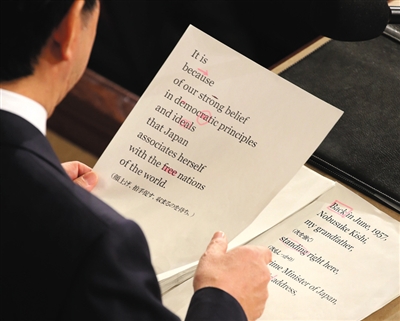 It is
because
of our strong belief
in democratic principles
and ideals
that Japan
associates herself
with the free nations
of the world.
(顔上げ、拍手促す、収まるのを待ち。)
Back in June, 1957,
Nobusuke Kishi,
my grandfather,
standing right here,
Prime Minister of Japan,
address,